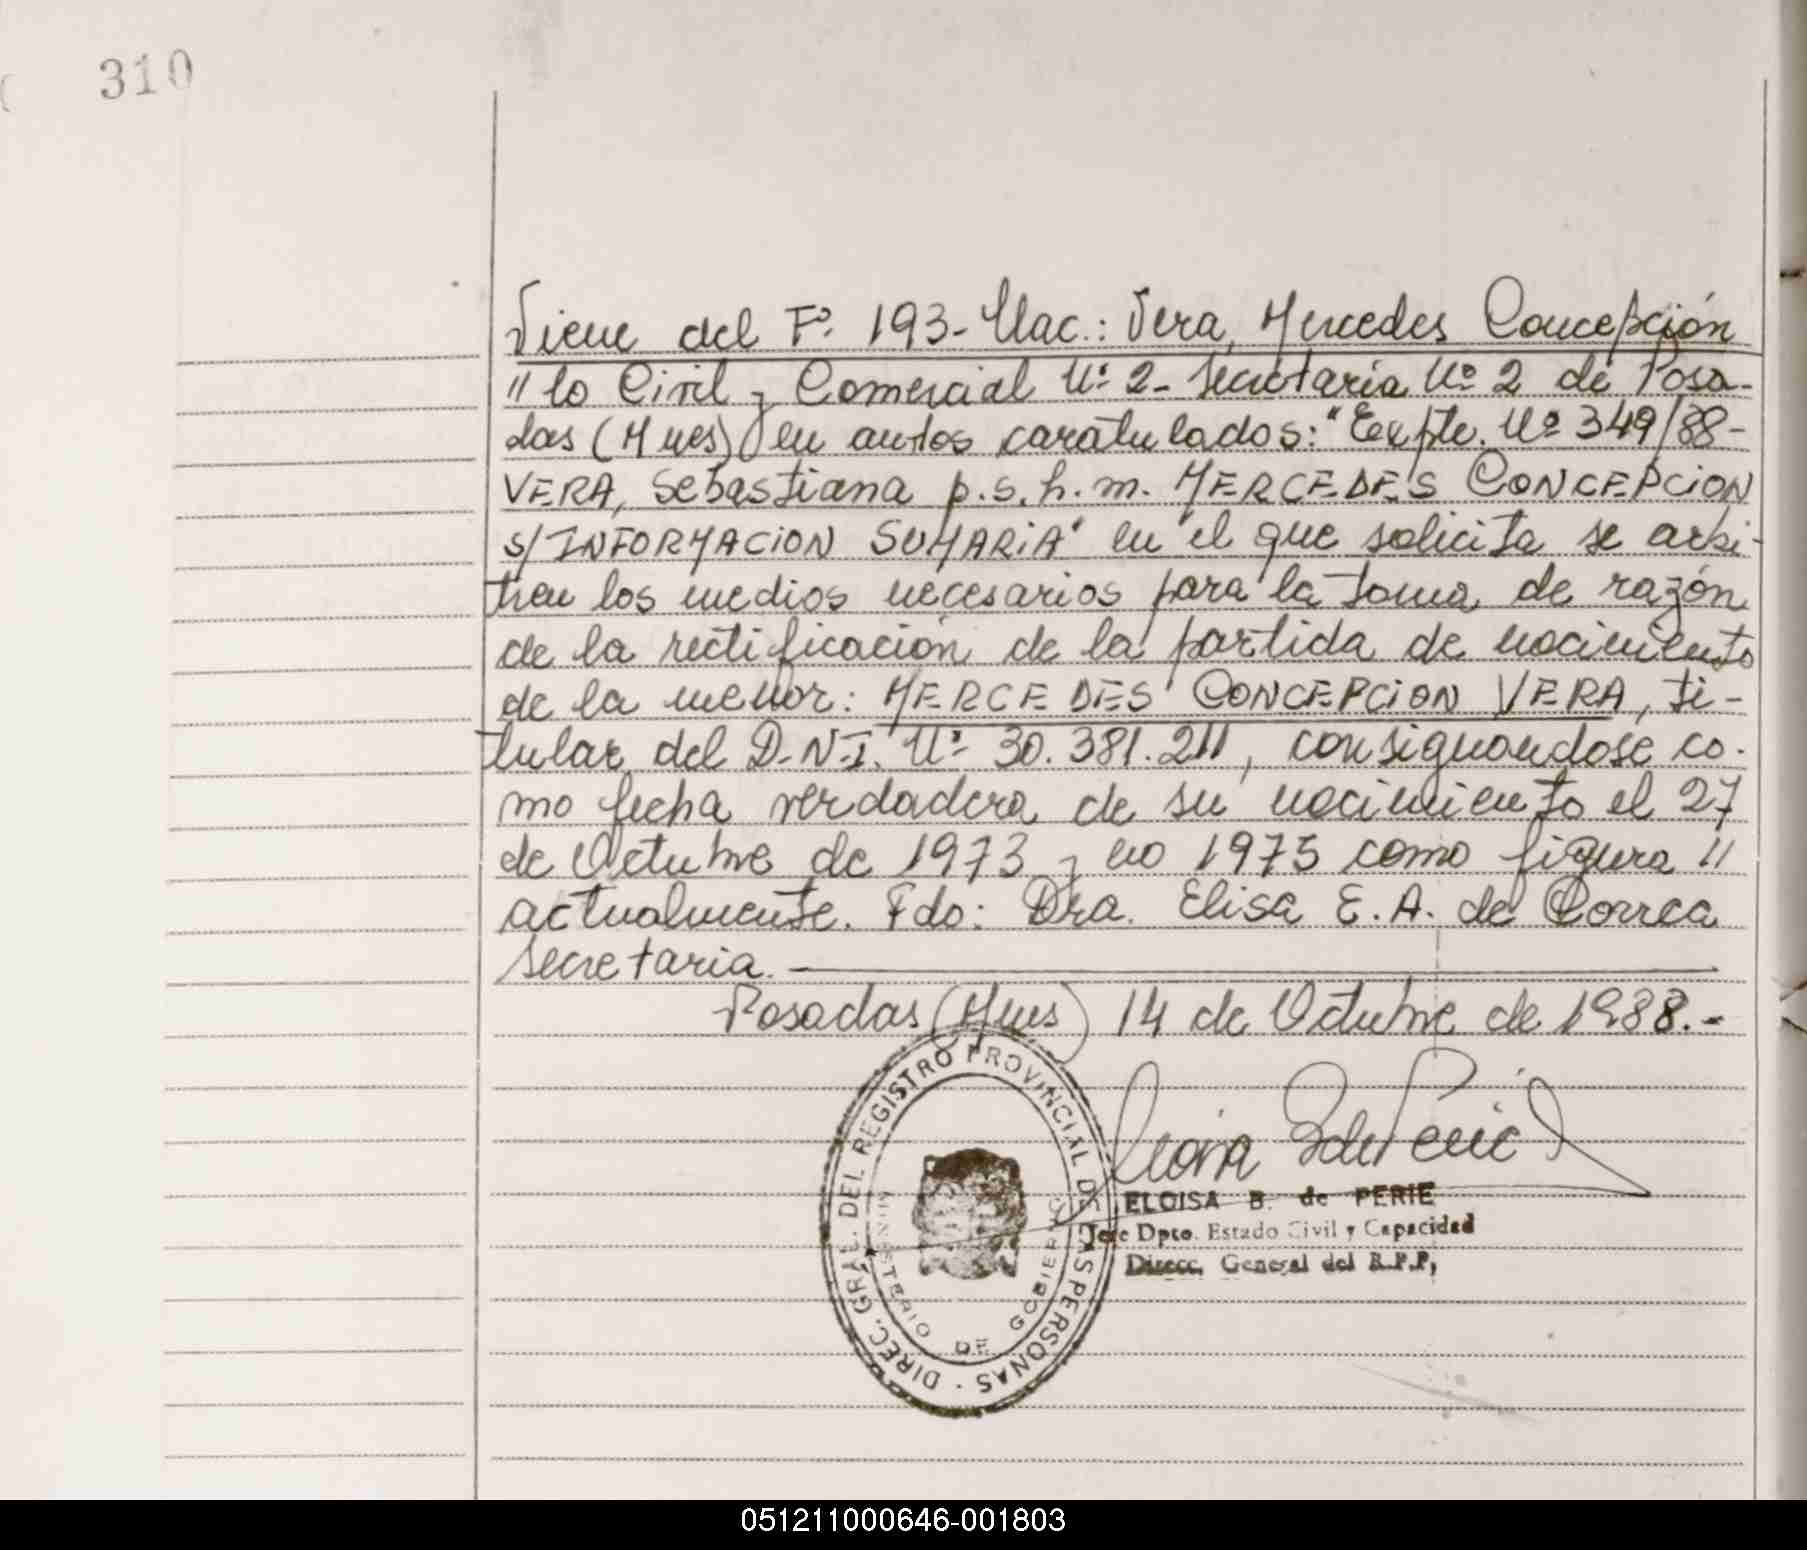 310
Viene del Fº. 193- Nac.: Vera, Mercedes Concepción
" lo Civil y Comercial Nº 2- Secretaría Nº 2 de Posa-
das (Mnes) en autos caratulados: "Expte. Nº 349/88-
VERA, Sebastiana p.s.h.m. MERCEDES CONCEPCION
S/INFORMACION SUMARIA" en el que solicita se arbi-
tren los medios necesarios para la toma de razón
de la rectificación de la partida de nacimiento
de la menor: MERCEDES CONCEPCION VERA, ti-
tular del D.N.I. Nº 30.381.211, consignandose co-
mo fecha verdadera de su nacimiento el 27
de Octubre de 1973 y no 1975 como figura "
actualmente. Fdo: Dra. Elisa E. A. de Correa
Secretaria.
Posadas (Mnes) 14 de Octubre de 1988.-
DIREC. GRAL. DEL REGISTRO PROVINCIAL DE LAS PERSONAS -
MINISTERIO DE GOBIERNO
ELOISA B. de PERIE
Jefe Dpto. Estado Civil y Capacidad
Direcc. General del R.P.P.
051211000646-001803